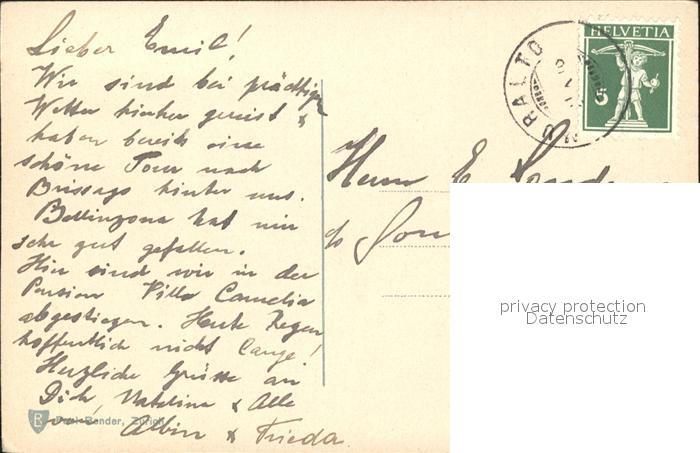 Lieber Emil!
Wir sind bei prächtigem
Wetter hierher gereist &
haben bereits eine
schöne Tour nach
Brissago hinter uns.
Bellinzona hat mir
sehr gut gefallen.
Hier sind wir in der
Pension Villa Camelia
abgestiegen. Heute Regen
hoffentlich nicht lange!
Herzliche Grüsse an
Dich, & Alle
von Albin & Frieda.
Bender, Zürich
HELVETIA
5
MURALTO
Herrn E.
c/o
privacy protection
Datenschutz